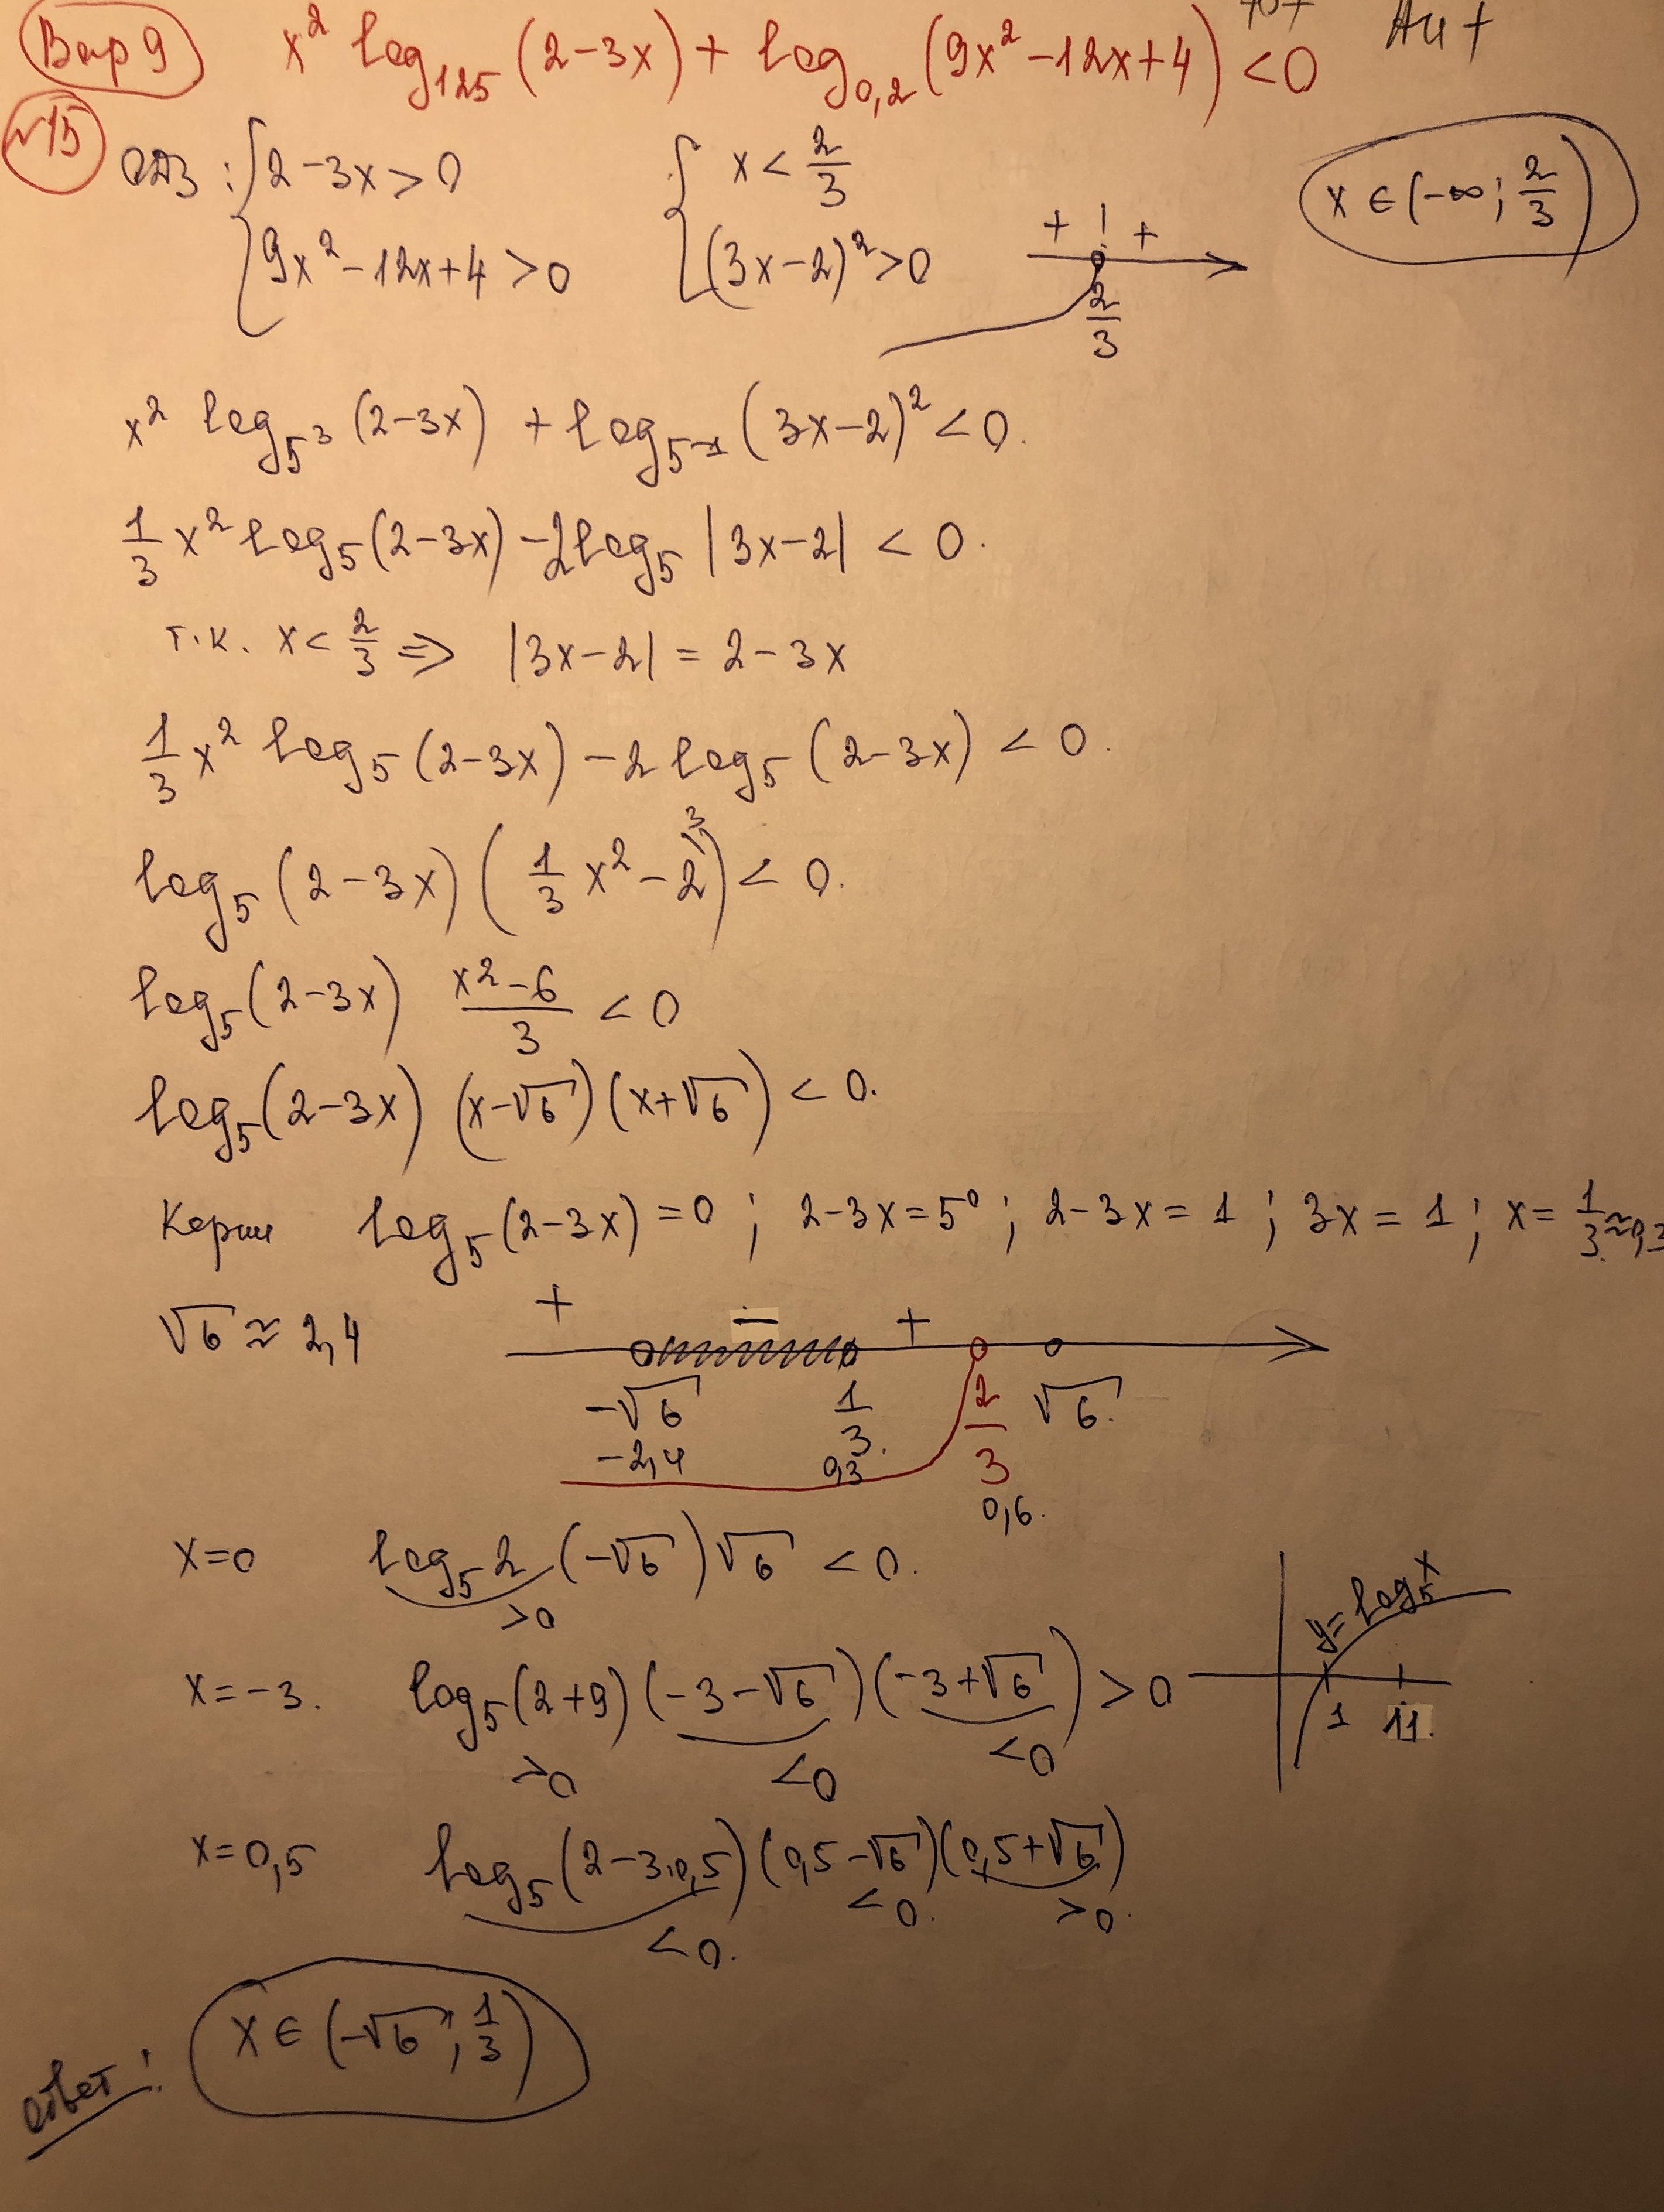 Вар 9 x² log₁₂₅ (2-3x) + log₀,₂ (9x²-12x+4) < 0
№15
ОДЗ: { 2-3x > 0 { x < 2/3 x ∈ (-∞; 2/3)
9x²-12x+4 > 0 (3x-2)² > 0 + ! +
2/3
x² log_{5³} (2-3x) + log_{5⁻¹} (3x-2)² < 0.
1/3 x² log₅ (2-3x) - 2 log₅ |3x-2| < 0.
т.к. x < 2/3 ⇒ |3x-2| = 2-3x
1/3 x² log₅ (2-3x) - 2 log₅ (2-3x) < 0.
log₅ (2-3x) (1/3 x² - 2^{\3}) < 0.
log₅ (2-3x) (x²-6)/3 < 0
log₅ (2-3x) (x-√6)(x+√6) < 0.
Корни log₅ (2-3x) = 0 ; 2-3x = 5⁰ ; 2-3x = 1 ; 3x = 1 ; x = 1/3 ≈ 0,3
√6 ≈ 2,4 + - +
-√6 1/3. 2/3 √6.
-2,4 0,3 0,6.
x=0 log₅ 2 (-√6) √6 < 0.
>0
y = log₅ x
x=-3. log₅ (2+9) (-3-√6)(-3+√6) > 0
>0 <0 <0
1 11.
x=0,5 log₅ (2-3·0,5) (0,5-√6)(0,5+√6)
<0. <0. >0.
Ответ: x ∈ (-√6; 1/3)